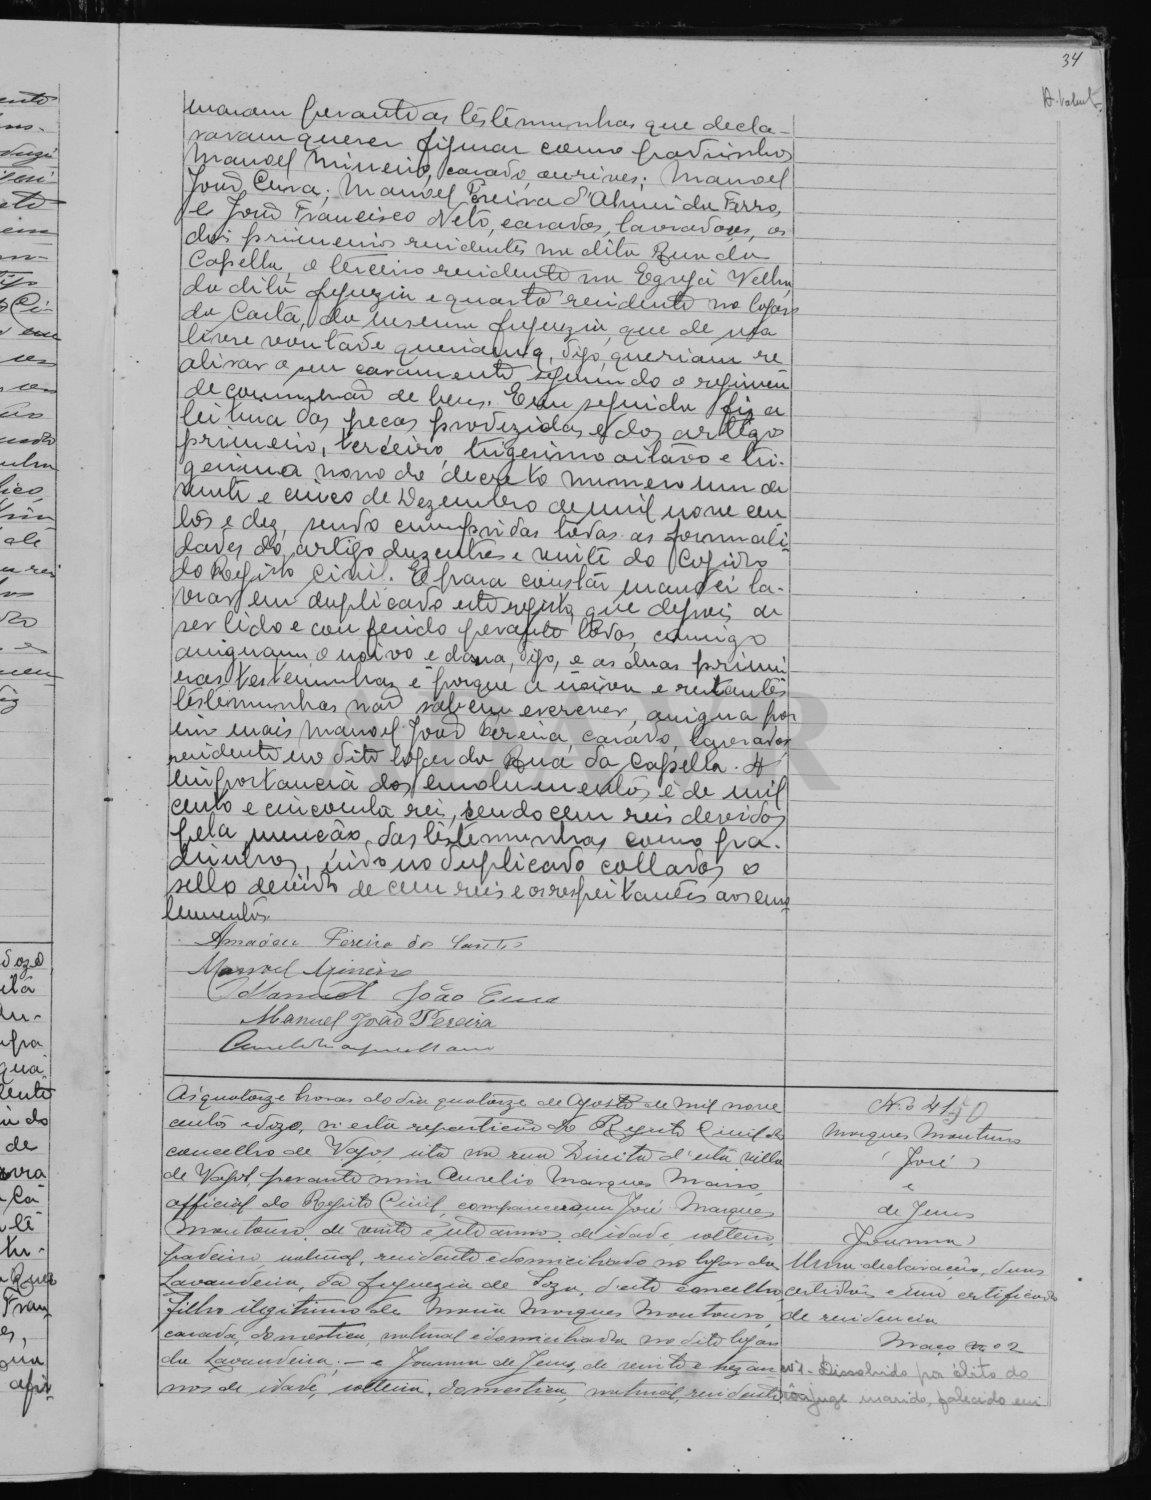 34
maram perante as testemunhas que decla-
raram querer figurar como padrinhos
Manoel Mineiro, casado, ourives; Manoel
João Cura; Manoel Pereira d'Almeida Ferro,
e João Francisco Neto, casados, lavradores, os
dois primeiros residentes na dita Rua da
Capella, o terceiro residente na Egreja Velha,
da dita freguezia e quarto residente no logar
da Carta, da mesma freguezia, que de sua
livre vontade queriam q, digo, queriam re
alisar o seu casamento segundo o regimen
de communhão de bens. Em seguida fiz a
leitura das peças produzidas e dos artigos
primeiro, terceiro, trigesimo oitavo e tri-
gesimo nono do decreto numero um de
vinte e cinco de Dezembro de mil nove cen
tos e dez, sendo cumpridas todas as formali-
dades do artigo duzentos e vinte do Codigo
do Registo Civil. E para constar mandei la-
vrar em duplicado este registo, que depois de
ser lido e conferido perante todos, comigo
assignam, o noivo e dona, digo, e as duas primei
ras testemunhas e porque a noiva e restantes
testemunhas não sabem escrever, assigna por
mais Manoel João Pereira, casado, lavrador,
residente no dito logar da Rua da Capella. A
importancia dos emolumentos é de mil
cento e cincoenta reis, sendo cem reis devidos
pela menção das testemunhas como pa-
drinhos, indo no duplicado collados o
sello devido de cem reis e os respeitantes aos emo
lumentos.
Amadeu Pereira dos Santos
Manoel Mineiro
Manuel João Cura
Manuel João Pereira
Ás quatorze horas do dia quatorze de Agosto de mil nove
centos e doze, n'esta repartição do Registo Civil do
concelho de Vagos, sita na rua Direita d'esta villa
de Vagos, perante mim Aurelio Marques Mano,
official do Registo Civil, compareceram José Marques
Moutouro, de vinte e oito annos de idade, solteiro,
padeiro, natural, residente e domiciliado no logar da
Lavandeira, da freguezia de Soza, d'este concelho,
filho illegitimo de Maria Marques Moutouro,
casada, domestica, natural e domiciliada no dito logar
da Lavandeira; — e Joanna de Jesus, de vinte e trez an
nos de idade, solteira, domestica, natural, residente
N.º 41
Marques Moutouro
(José)
e
de Jesus
(Joanna)
Uma declaração, duas
certidões e um certificado
de residencia
Maço n.º 2
N.º 1 - Dissolvido por óbito do
cônjuge marido, falecido em